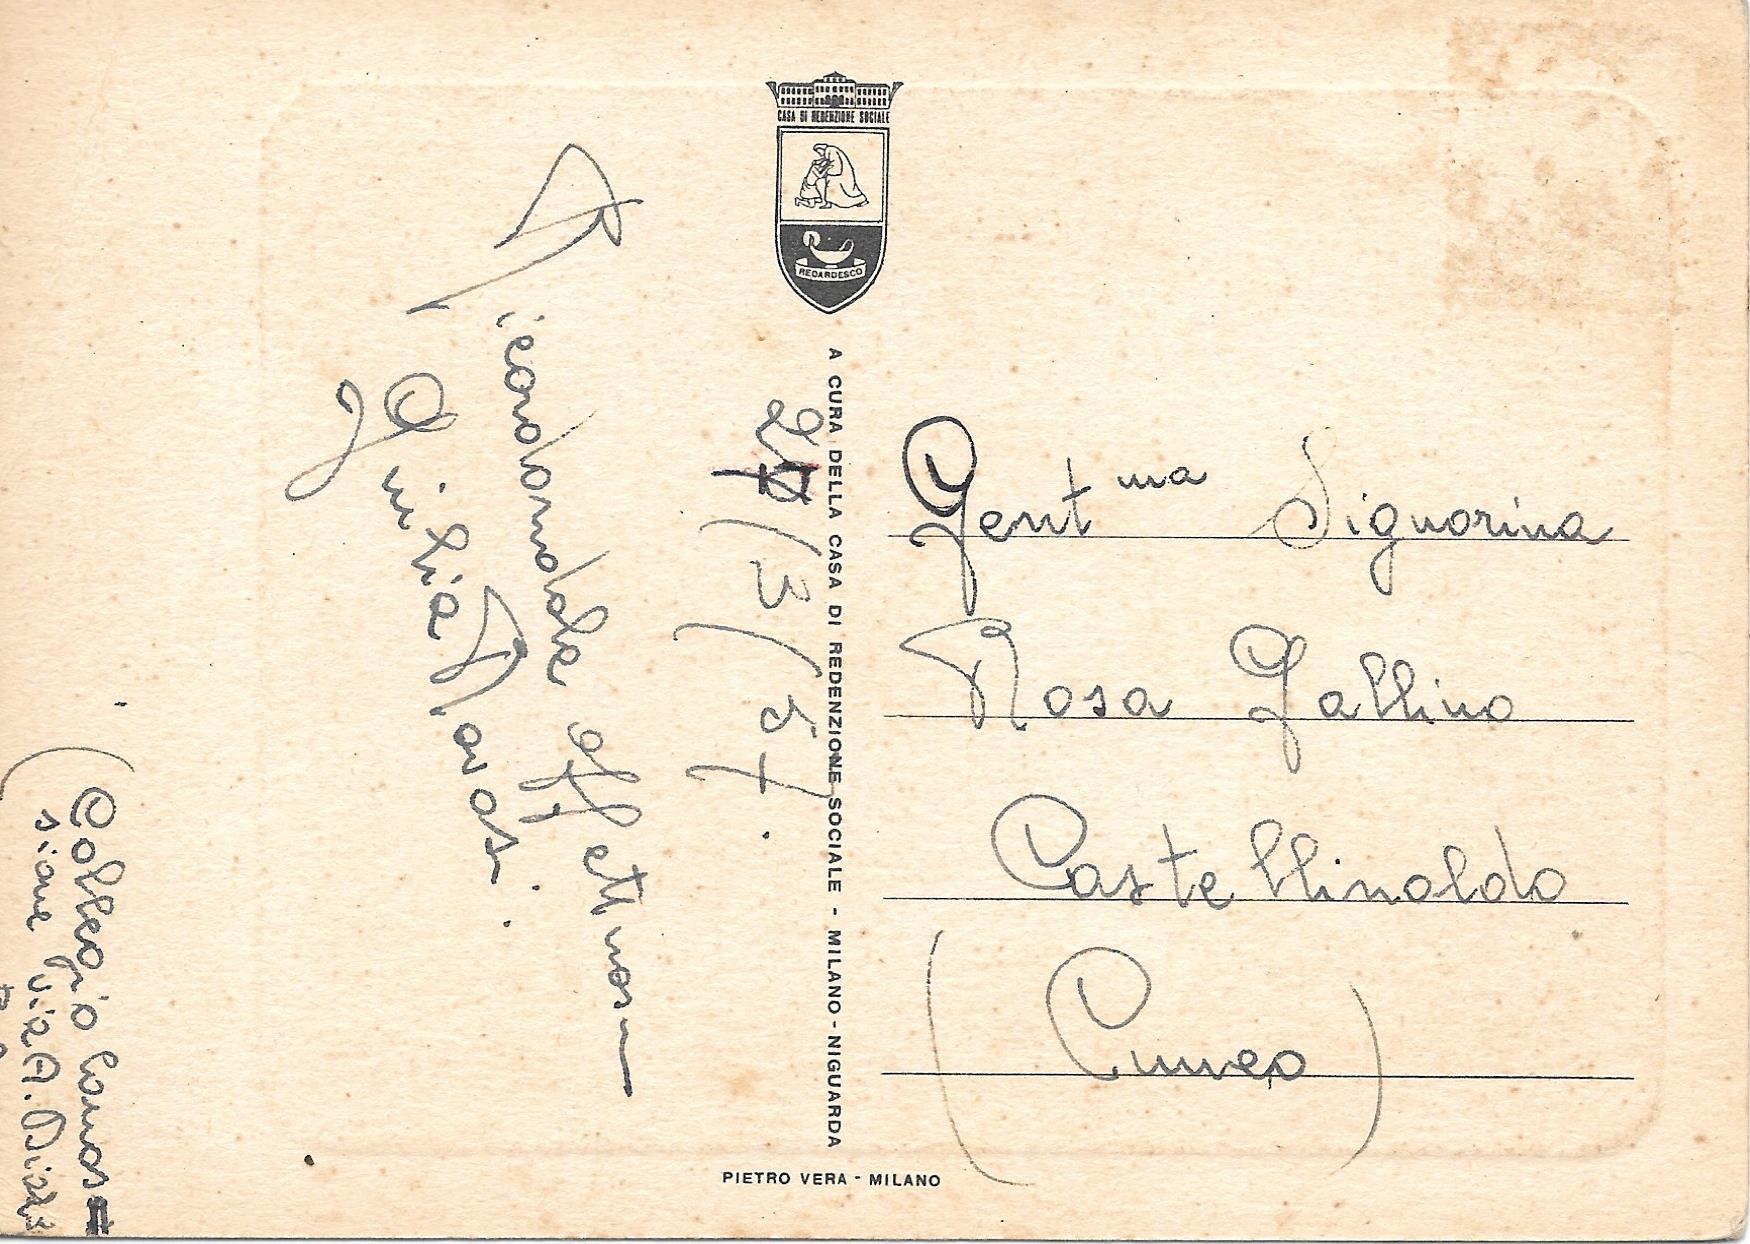 CASA DI REDENZIONE SOCIALE
REDARDESCO
A CURA DELLA CASA DI REDENZIONE SOCIALE - MILANO - NIGUARDA
PIETRO VERA - MILANO
27/3/57.
Ricordandole affettuosa
Giulia
Gent ma Signorina
Rosa Gallino
Castellinaldo
(Cuneo)
(Collegio
via A.